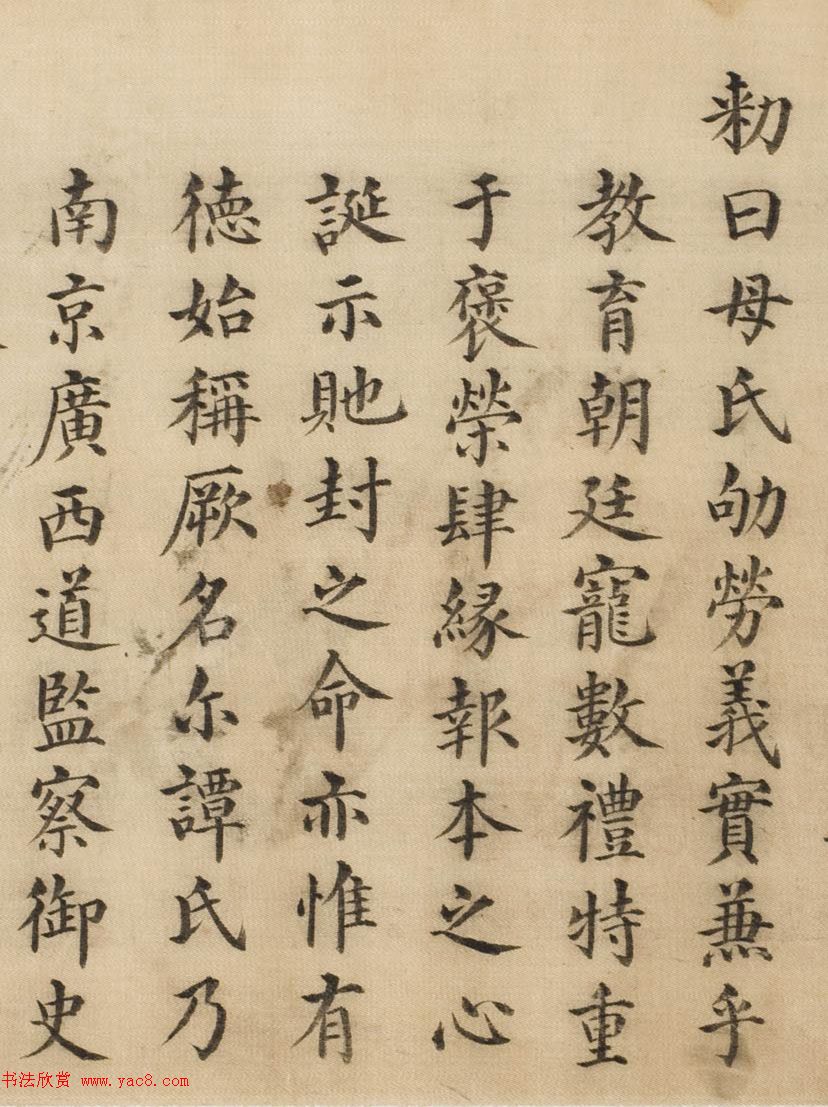 勑曰母氏劬勞義實兼乎
教育朝廷寵數禮特重
于褒榮肆緣報本之心
誕示貤封之命亦惟有
德始稱厥名尓譚氏乃
南京廣西道監察御史
书法欣赏 www.yac8.com